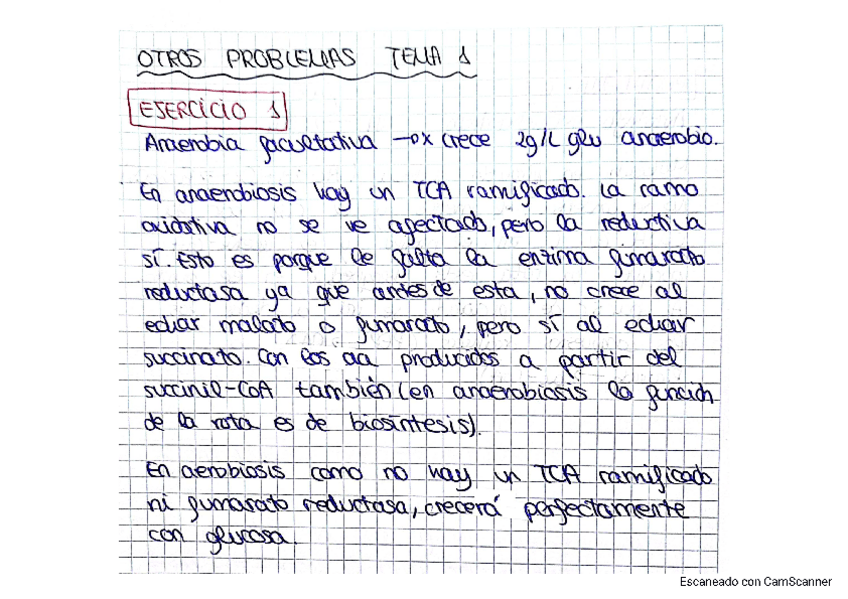 OTROS PROBLEMAS TEMA 1
EJERCICIO 1
Anaerobia facultativa → x crece 2g/L glu anaerobio.
En anaerobiosis hay un TCA ramificado. La rama
oxidativa no se ve afectado, pero la reductiva
sí. Esto es porque le falta la enzima fumarato
reductasa ya que antes de esta, no crece al
echar malato o fumarato, pero sí al echar
succinato. Con los aa producidos a partir del
succinil-CoA también (en anaerobiosis la función
de la ruta es de biosíntesis).
En aerobiosis como no hay un TCA ramificado
ni fumarato reductasa, crecerá perfectamente
con glucosa.
Escaneado con CamScanner